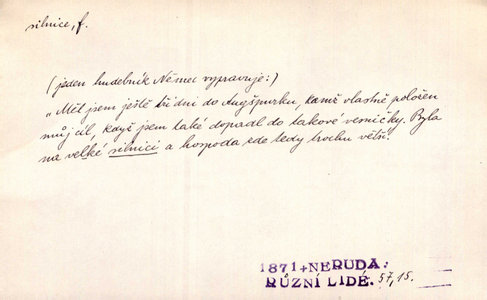 silnice, f.
(jeden hudebník Němec vypravuje:)
„Měl jsem ještě tři dni do Augšpurku, kamž vlastně položen
můj cíl, když jsem také dopadl do takové vesničky. Byla
na velké silnici a hospoda zde tedy trochu větší.
1871+NERUDA:
RŮZNÍ LIDÉ. 57,15.